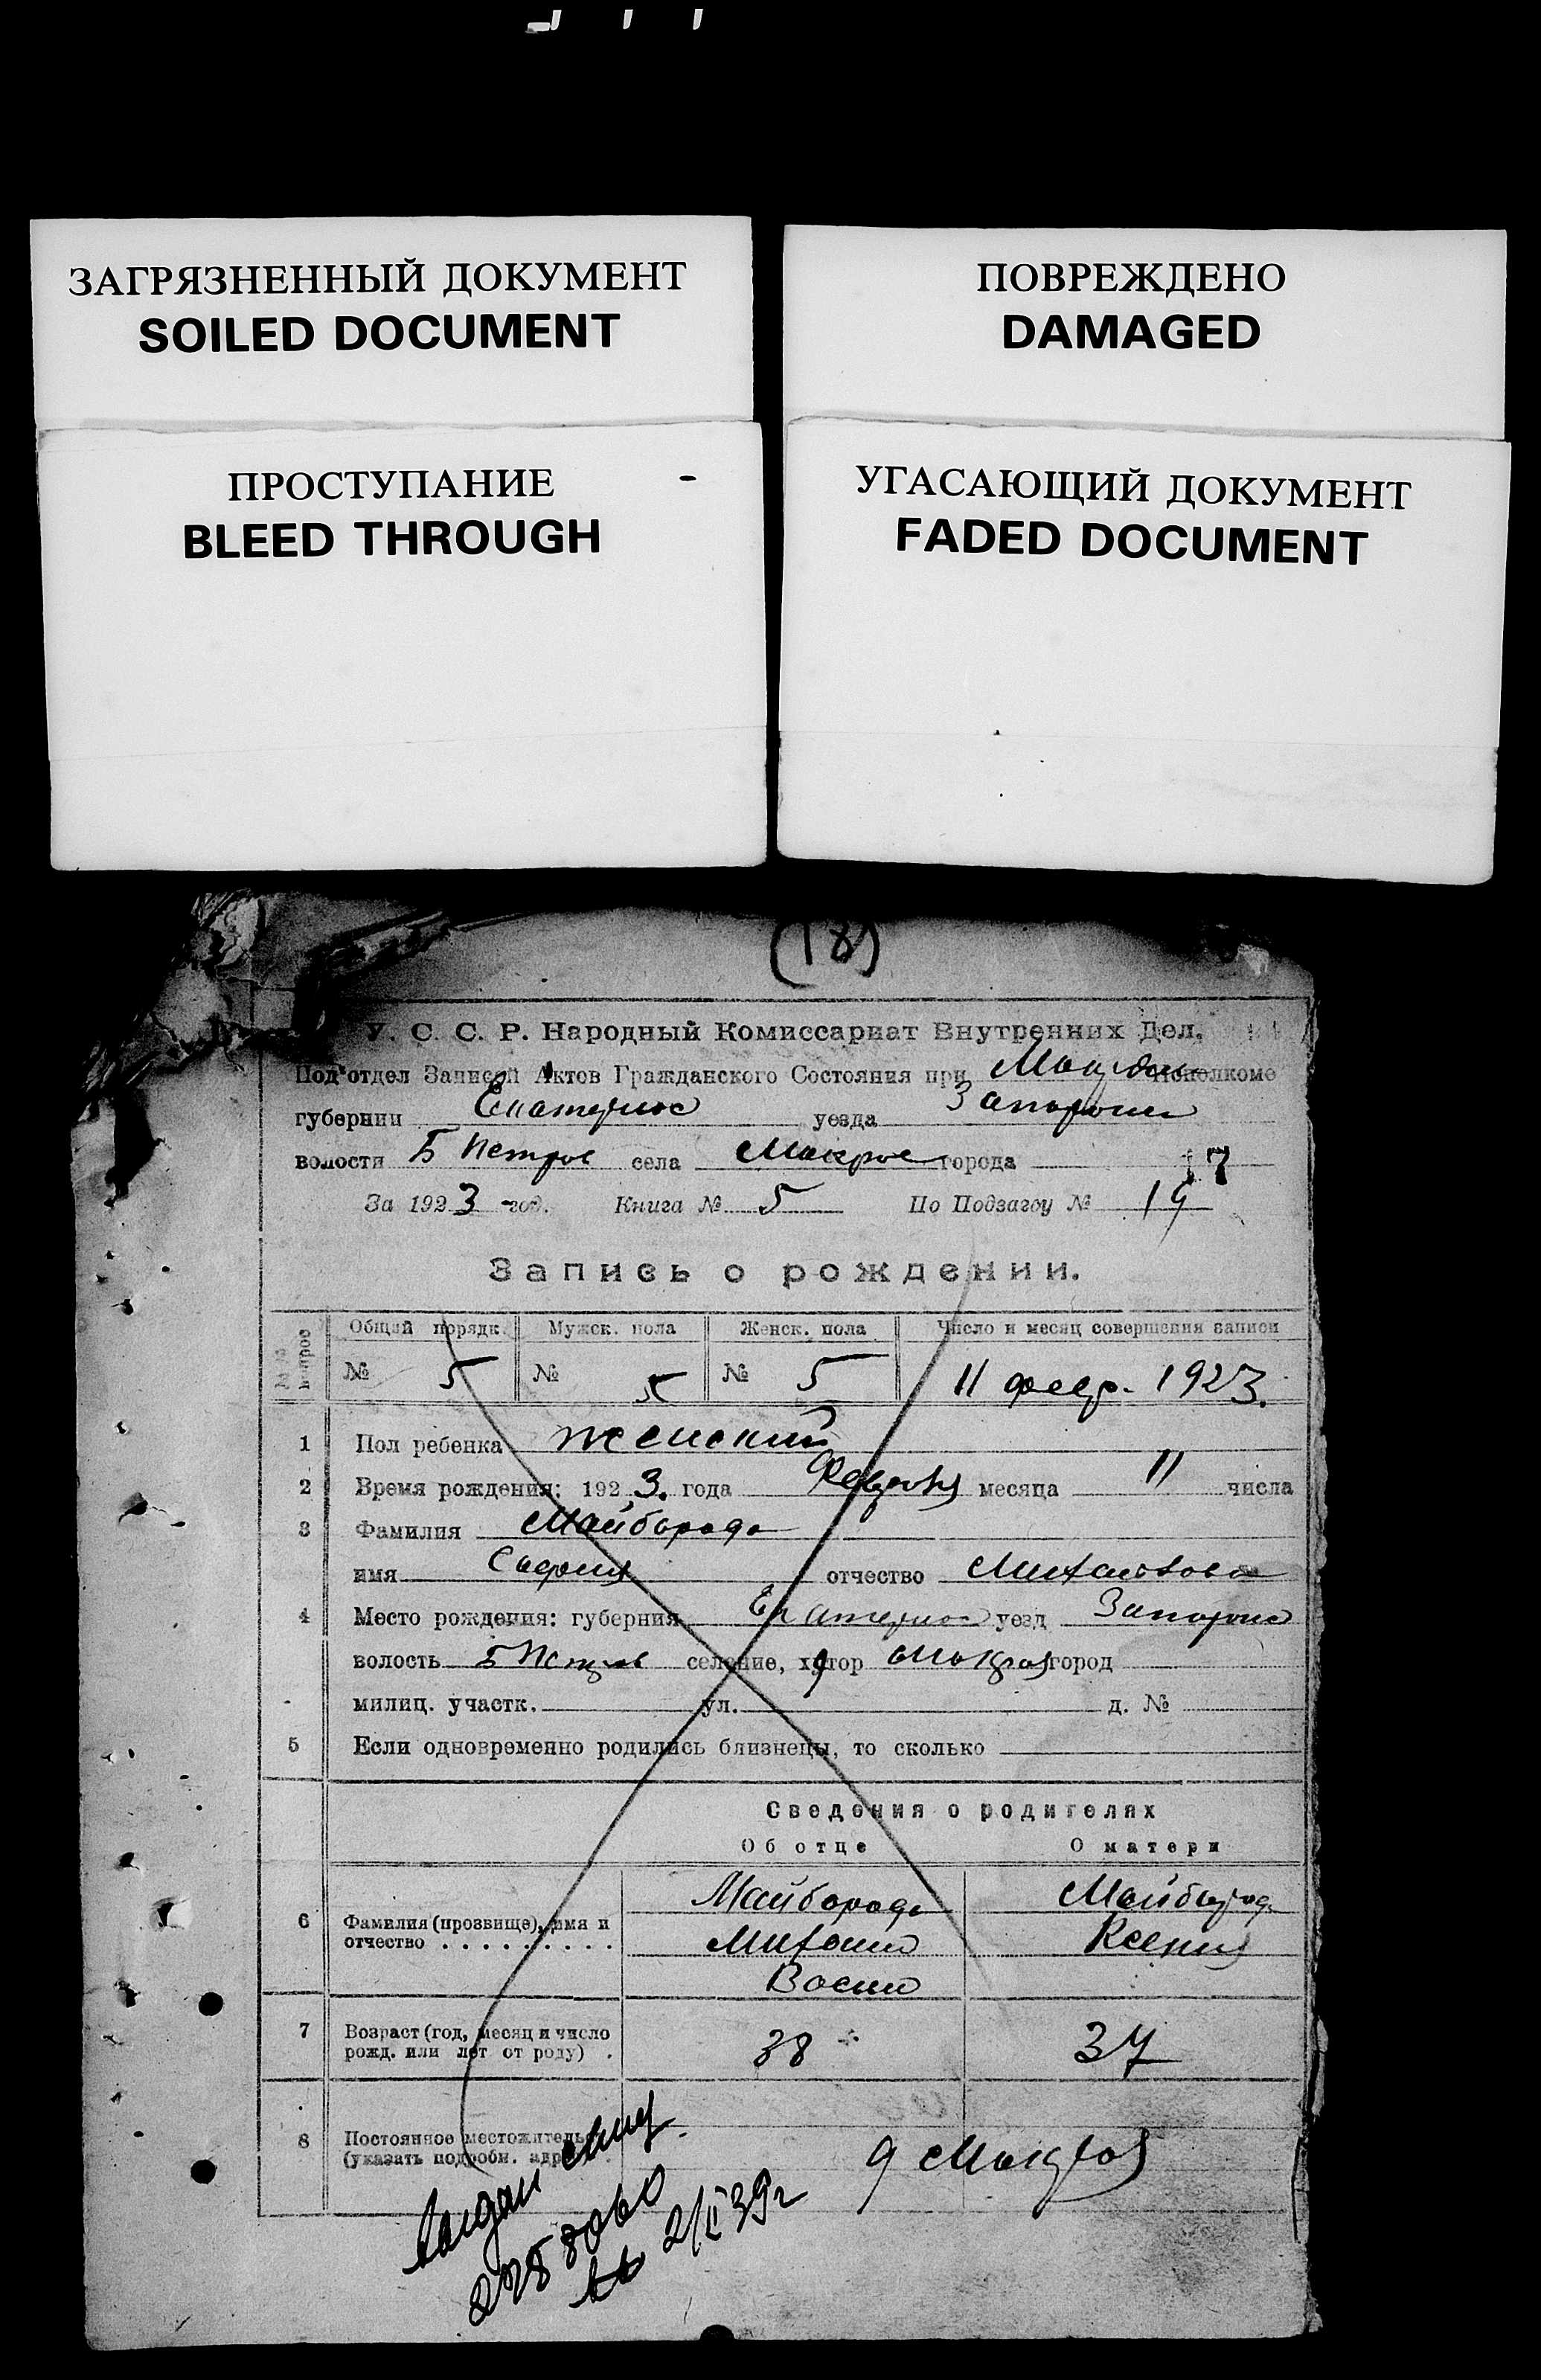 ЗАГРЯЗНЕННЫЙ ДОКУМЕНТ
SOILED DOCUMENT
ПОВРЕЖДЕНО
DAMAGED
ПРОСТУПАНИЕ
BLEED THROUGH
УГАСАЮЩИЙ ДОКУМЕНТ
FADED DOCUMENT
(18)
У. С. С. Р. Народный Комиссариат Внутренних Дел.
Под'отдел Записей Актов Гражданского Состояния при исполкоме
губернии Екатеринос уезда Запорож
волости Б Петров села Мокрое города
17
За 1923 год. Книга № 5 По Подзагсу № 19
Запись о рождении.
№№ вопрос Общий порядк. Мужск. пола Женск. пола Число и месяц совершения записи
№ 5 № № 5 11 февр. 1923.
1 Пол ребенка женский
2 Время рождения: 1923. года Февраля месяца 11 числа
3 Фамилия Майборода
имя София отчество Михайловна
4 Место рождения: губерния Екатеринос уезд Запорож
волость Б Петров селение, хутор Мокрая город
милиц. участк. ул. д. №
5 Если одновременно родились близнецы, то сколько
Сведения о родителях
Об отце О матери
6 Фамилия (прозвище), имя и отчество . . . . . . . . .
Майборода Майборода
Михаил Ксения
Васил
7 Возраст (год, месяц и число рожд. или лет от роду) . 38 37
8 Постоянное местожительс (указать подробн. адр
д Мокрой
2/II 39 г